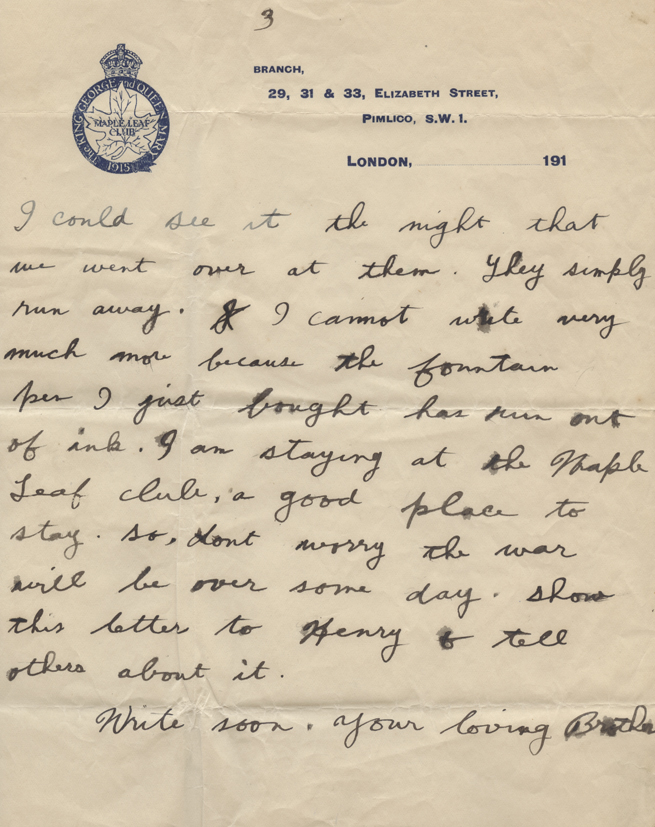 3
The KING GEORGE and QUEEN MARY
MAPLE LEAF
CLUB
1915
BRANCH,
29, 31 & 33, ELIZABETH STREET,
PIMLICO, S.W.1.
LONDON, 191
I could see it the night that
we went over at them. They simply
run away. I cannot write very
much more because the fountain
pen I just bought has run out
of ink. I am staying at the Maple
Leaf club, a good place to
stay. so, dont worry the war
will be over some day. show
this letter to Henry & tell
others about it.
Write soon. Your loving Brother